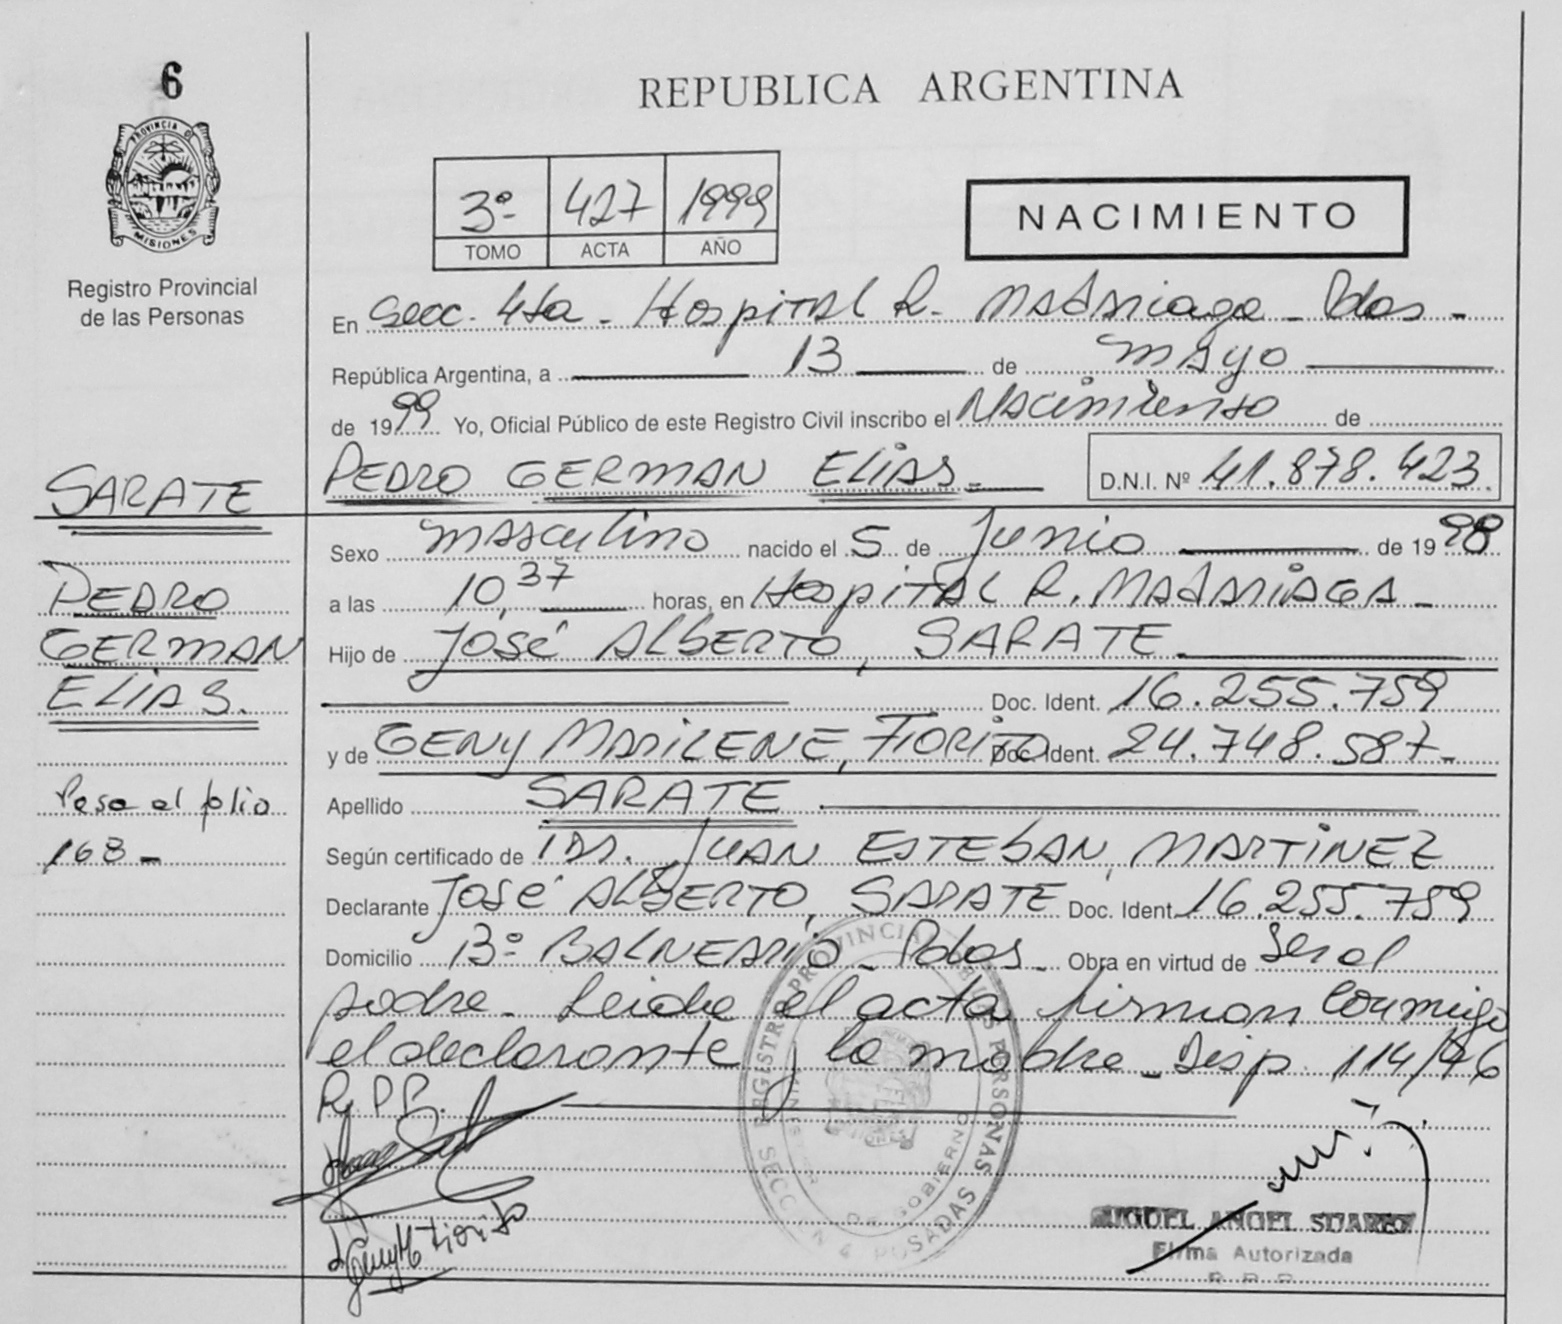 6
PROVINCIA DE
MISIONES
Registro Provincial
de las Personas
REPUBLICA ARGENTINA
3º- 427 1999
TOMO ACTA AÑO
NACIMIENTO
En Secc. 4ta - Hospital R. Madariaga - Pdas -
República Argentina, a 13 de Mayo
de 1999 Yo, Oficial Público de este Registro Civil inscribo el Nacimiento de
PEDRO GERMAN ELIAS.- D.N.I. Nº 41.878.423
Sexo masculino nacido el 5 de Junio de 1998
a las 10,37 horas, en Hospital R. MADARIAGA -
Hijo de José ALBERTO, SARATE
Doc. Ident. 16.255.759
y de GENY MARILENE, FIORITO Doc. Ident. 24.748.587-
Apellido SARATE
Según certificado de Dr. JUAN ESTEBAN, MARTINEZ
Declarante José ALBERTO, SARATE Doc. Ident. 16.255.759
Domicilio Bº BALNEARIO - Pdas - Obra en virtud de Ser el
padre - Leida el acta firman conmigo
el declarante y la madre - Disp. 114/96
R.P.P.
SARATE
PEDRO
GERMAN
ELIAS.
Pasa al folio
168-
REGISTRO PROVINCIAL PERSONAS
DE GOBIERNO
SECCION 4 POSADAS
Geny M Fiorito
MIGUEL ANGEL SUAREZ
Firma Autorizada
R. P. P.